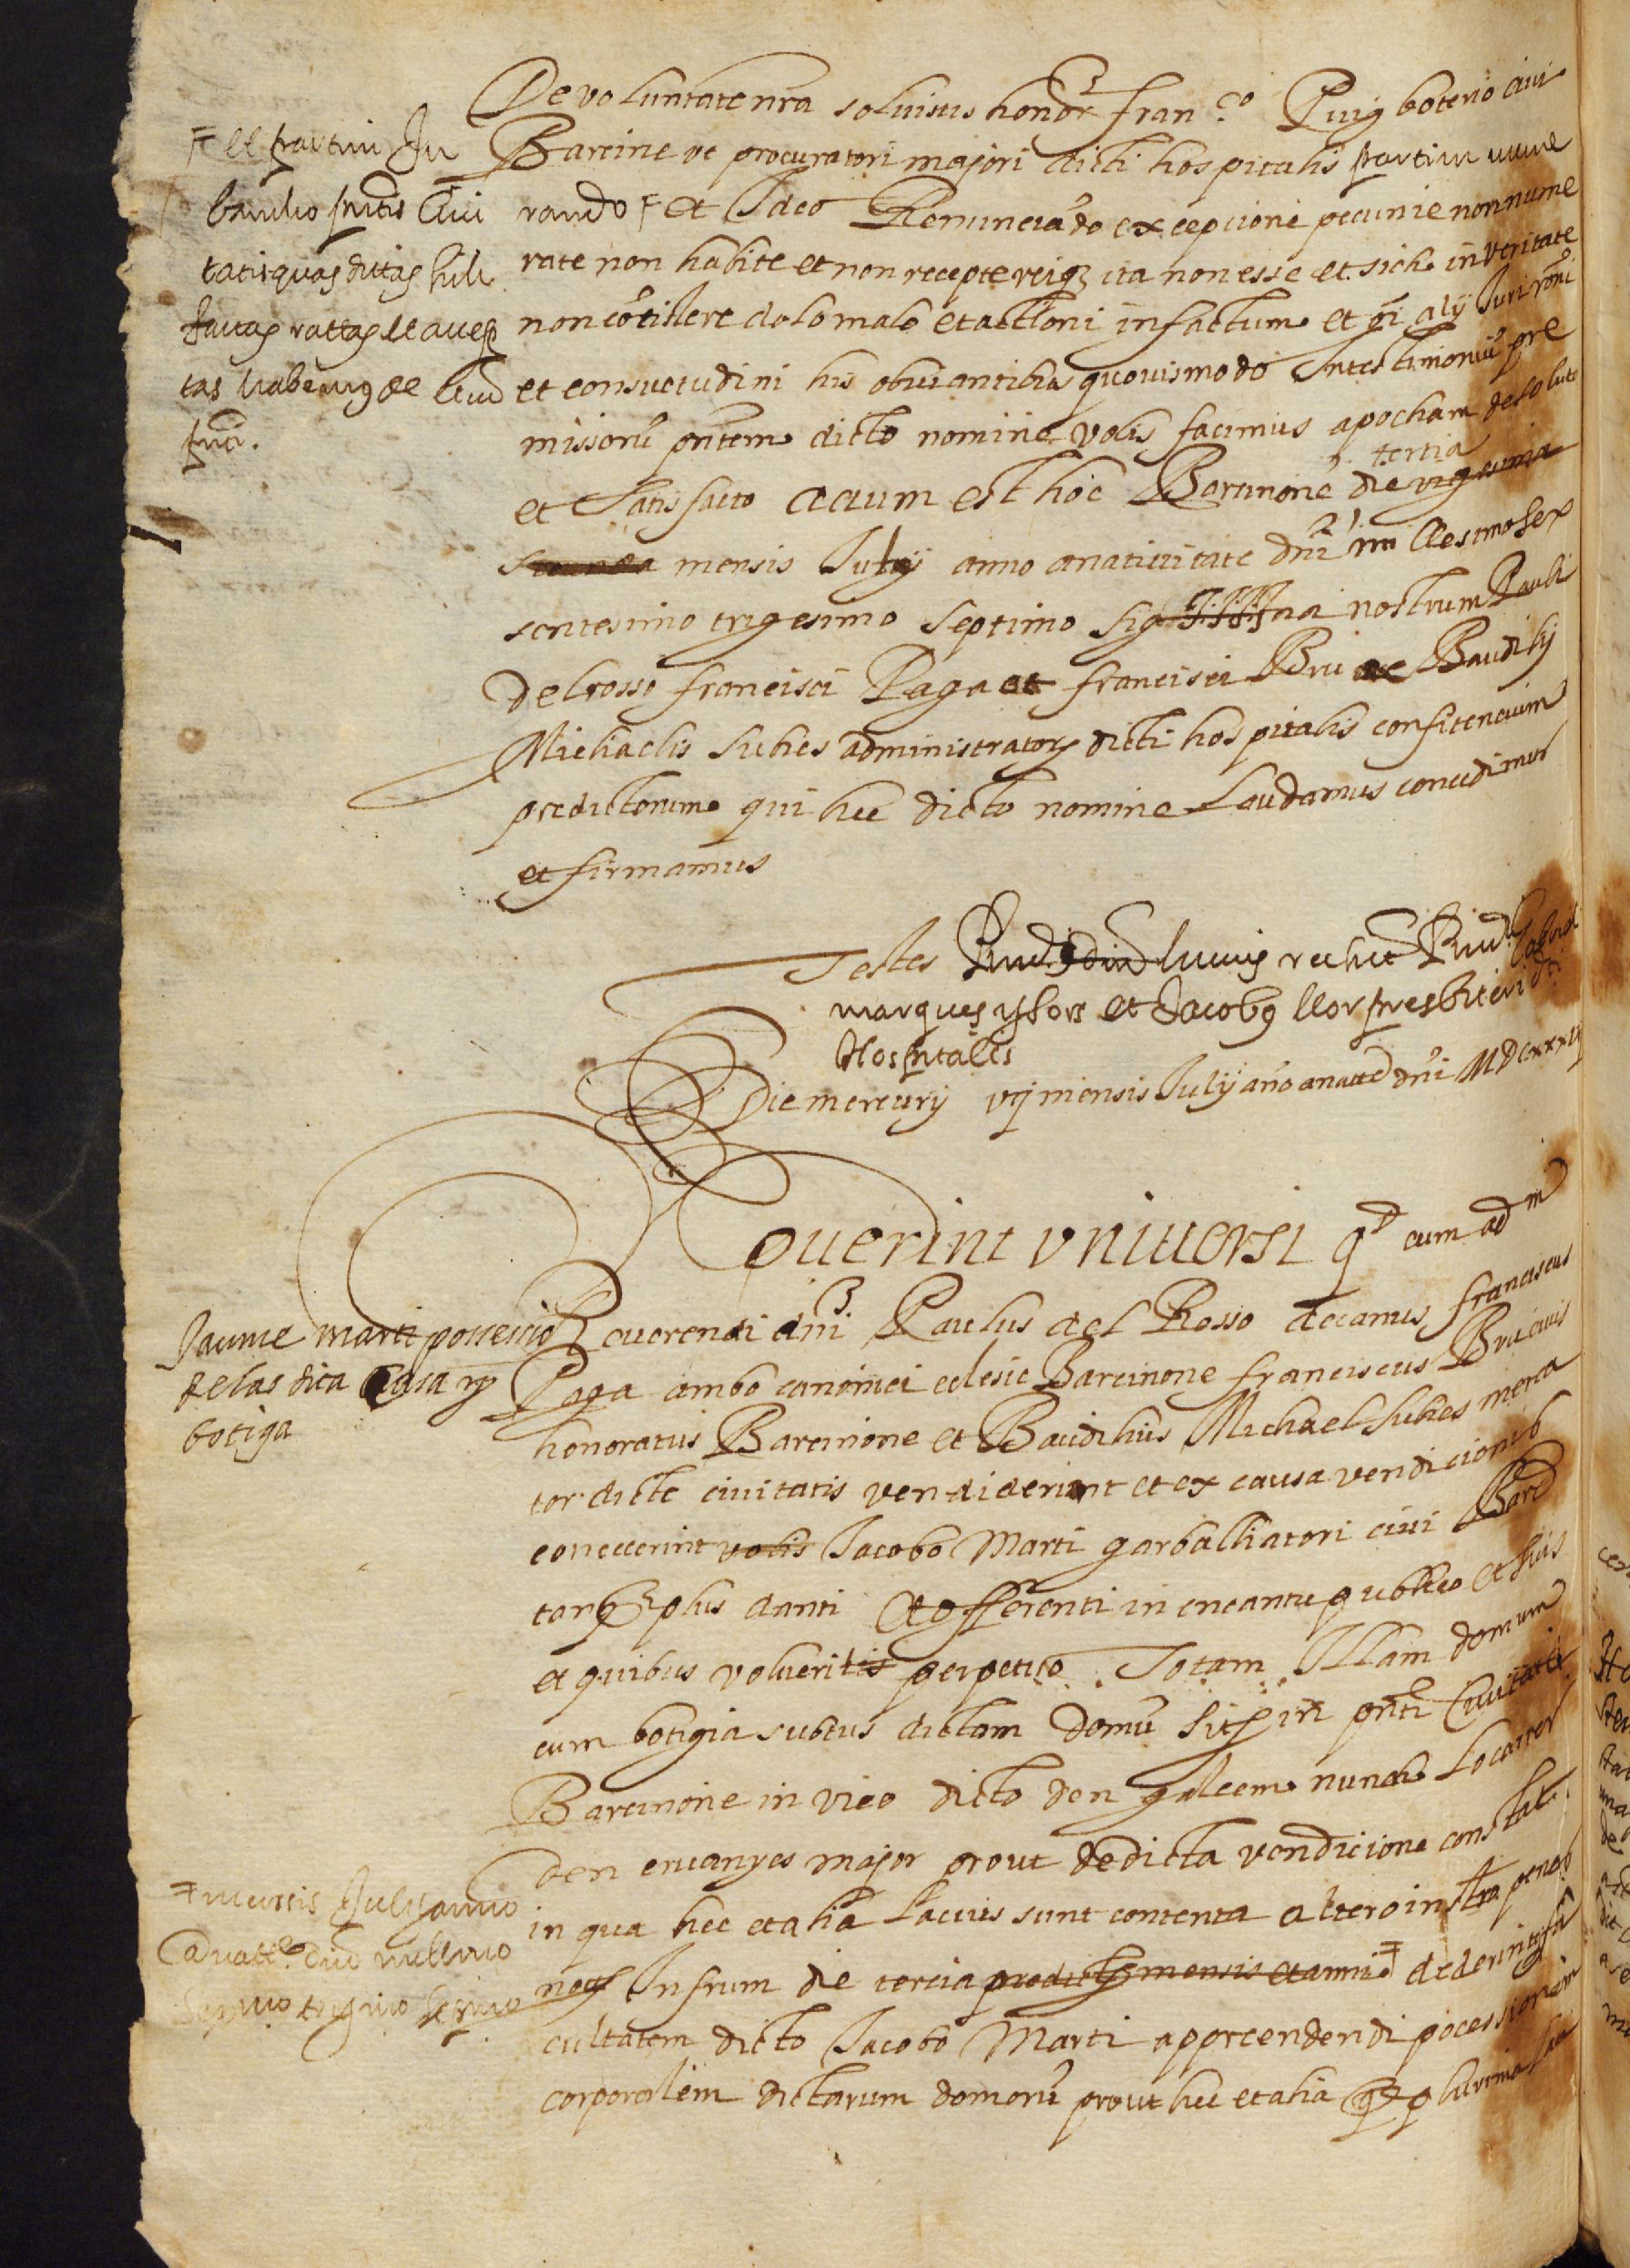 De voluntate nra solvistis honor fran.co Puig boterio civi
Barcine ut procuratori majori dicti hospitalis partim nume
rando et Ideo Renunciado excepcioni pecunie non nume
rate non habite et non recepte reiq ita non esse et sich in veritate
non cõsistere dolo malo et actioni in factum et oi alij Juri rõni
et consuetudini his obviantibus quovismodo In testimoniũ pre
missorũ pntem dicto nomine vobis facimus apocham de soluto
et Satisfacto actum est hoc Barcinone die vigesima
tertia
secunda mensis Julij anno a nativitate dnĩ millesimo sex
sentesimo trigesimo septimo Sig na nostrum Pauli
del rosso francisci Paga et francisci Bru ac Baudilij
Michaelis Subies administratorũ dicti hospitalis confitencium
predictorum qui hec dicto nomine Laudamus concedimus
et firmamus
et partim In
bancho pntis Civi
tatis quas dictas
factas rattas et accep
tas habemus de
Testes
marques et Jacobus llor presbiteri dti
Hospitalis
Die mercurij mensis Julij año a natte dnĩ MDCxxxvij
Noverint universi qd cum ad m
Reverendi dnĩ Paulus del Rosso decanus franciscus
Paga ambo canonici eclesie Barcinone franciscus Bru civis
honoratus Barcinone et Baudilius Michael Subies merca
tor dicte civitatis vendiderint et ex causa vendicionis
concecerint vobis Jacobo Marti garballiatori civi Barc
tanq plus danti et offerenti in encantu publico et suis
et quibus volueritis perpetuo Totam Illam domum
cum botigia subtus dictam domũ sit in pnti Civitate
Barcinone in vico dicto den gulcem nunch Lo carrer
den ervanyes major prout de dicta vendicione constat
in qua hec et alia Lacius sunt contenta altero instro penes
nos Infrum die tercia predictorũ mensis et anni dederint fa
cultatem dicto Jacobo Marti apprendendi pocessionem
corporalem dictarum domorũ prout hec et alia
Jaume marti possessio
de las dita Casa y
botiga
mensis Julij anno
a natte dni millmo